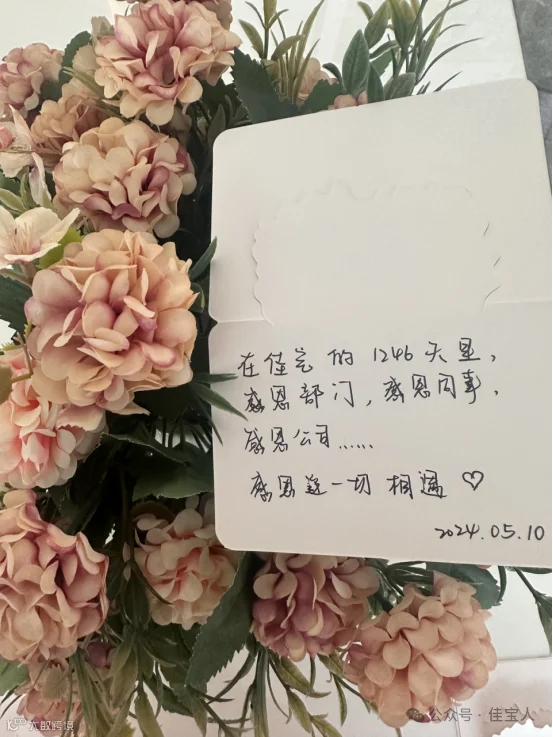 在佳艺的1246天里,
感恩部门,感恩同事,
感恩公司......
感恩这一切相遇♡
2024.05.10
公众号·佳宝人
大数跨境